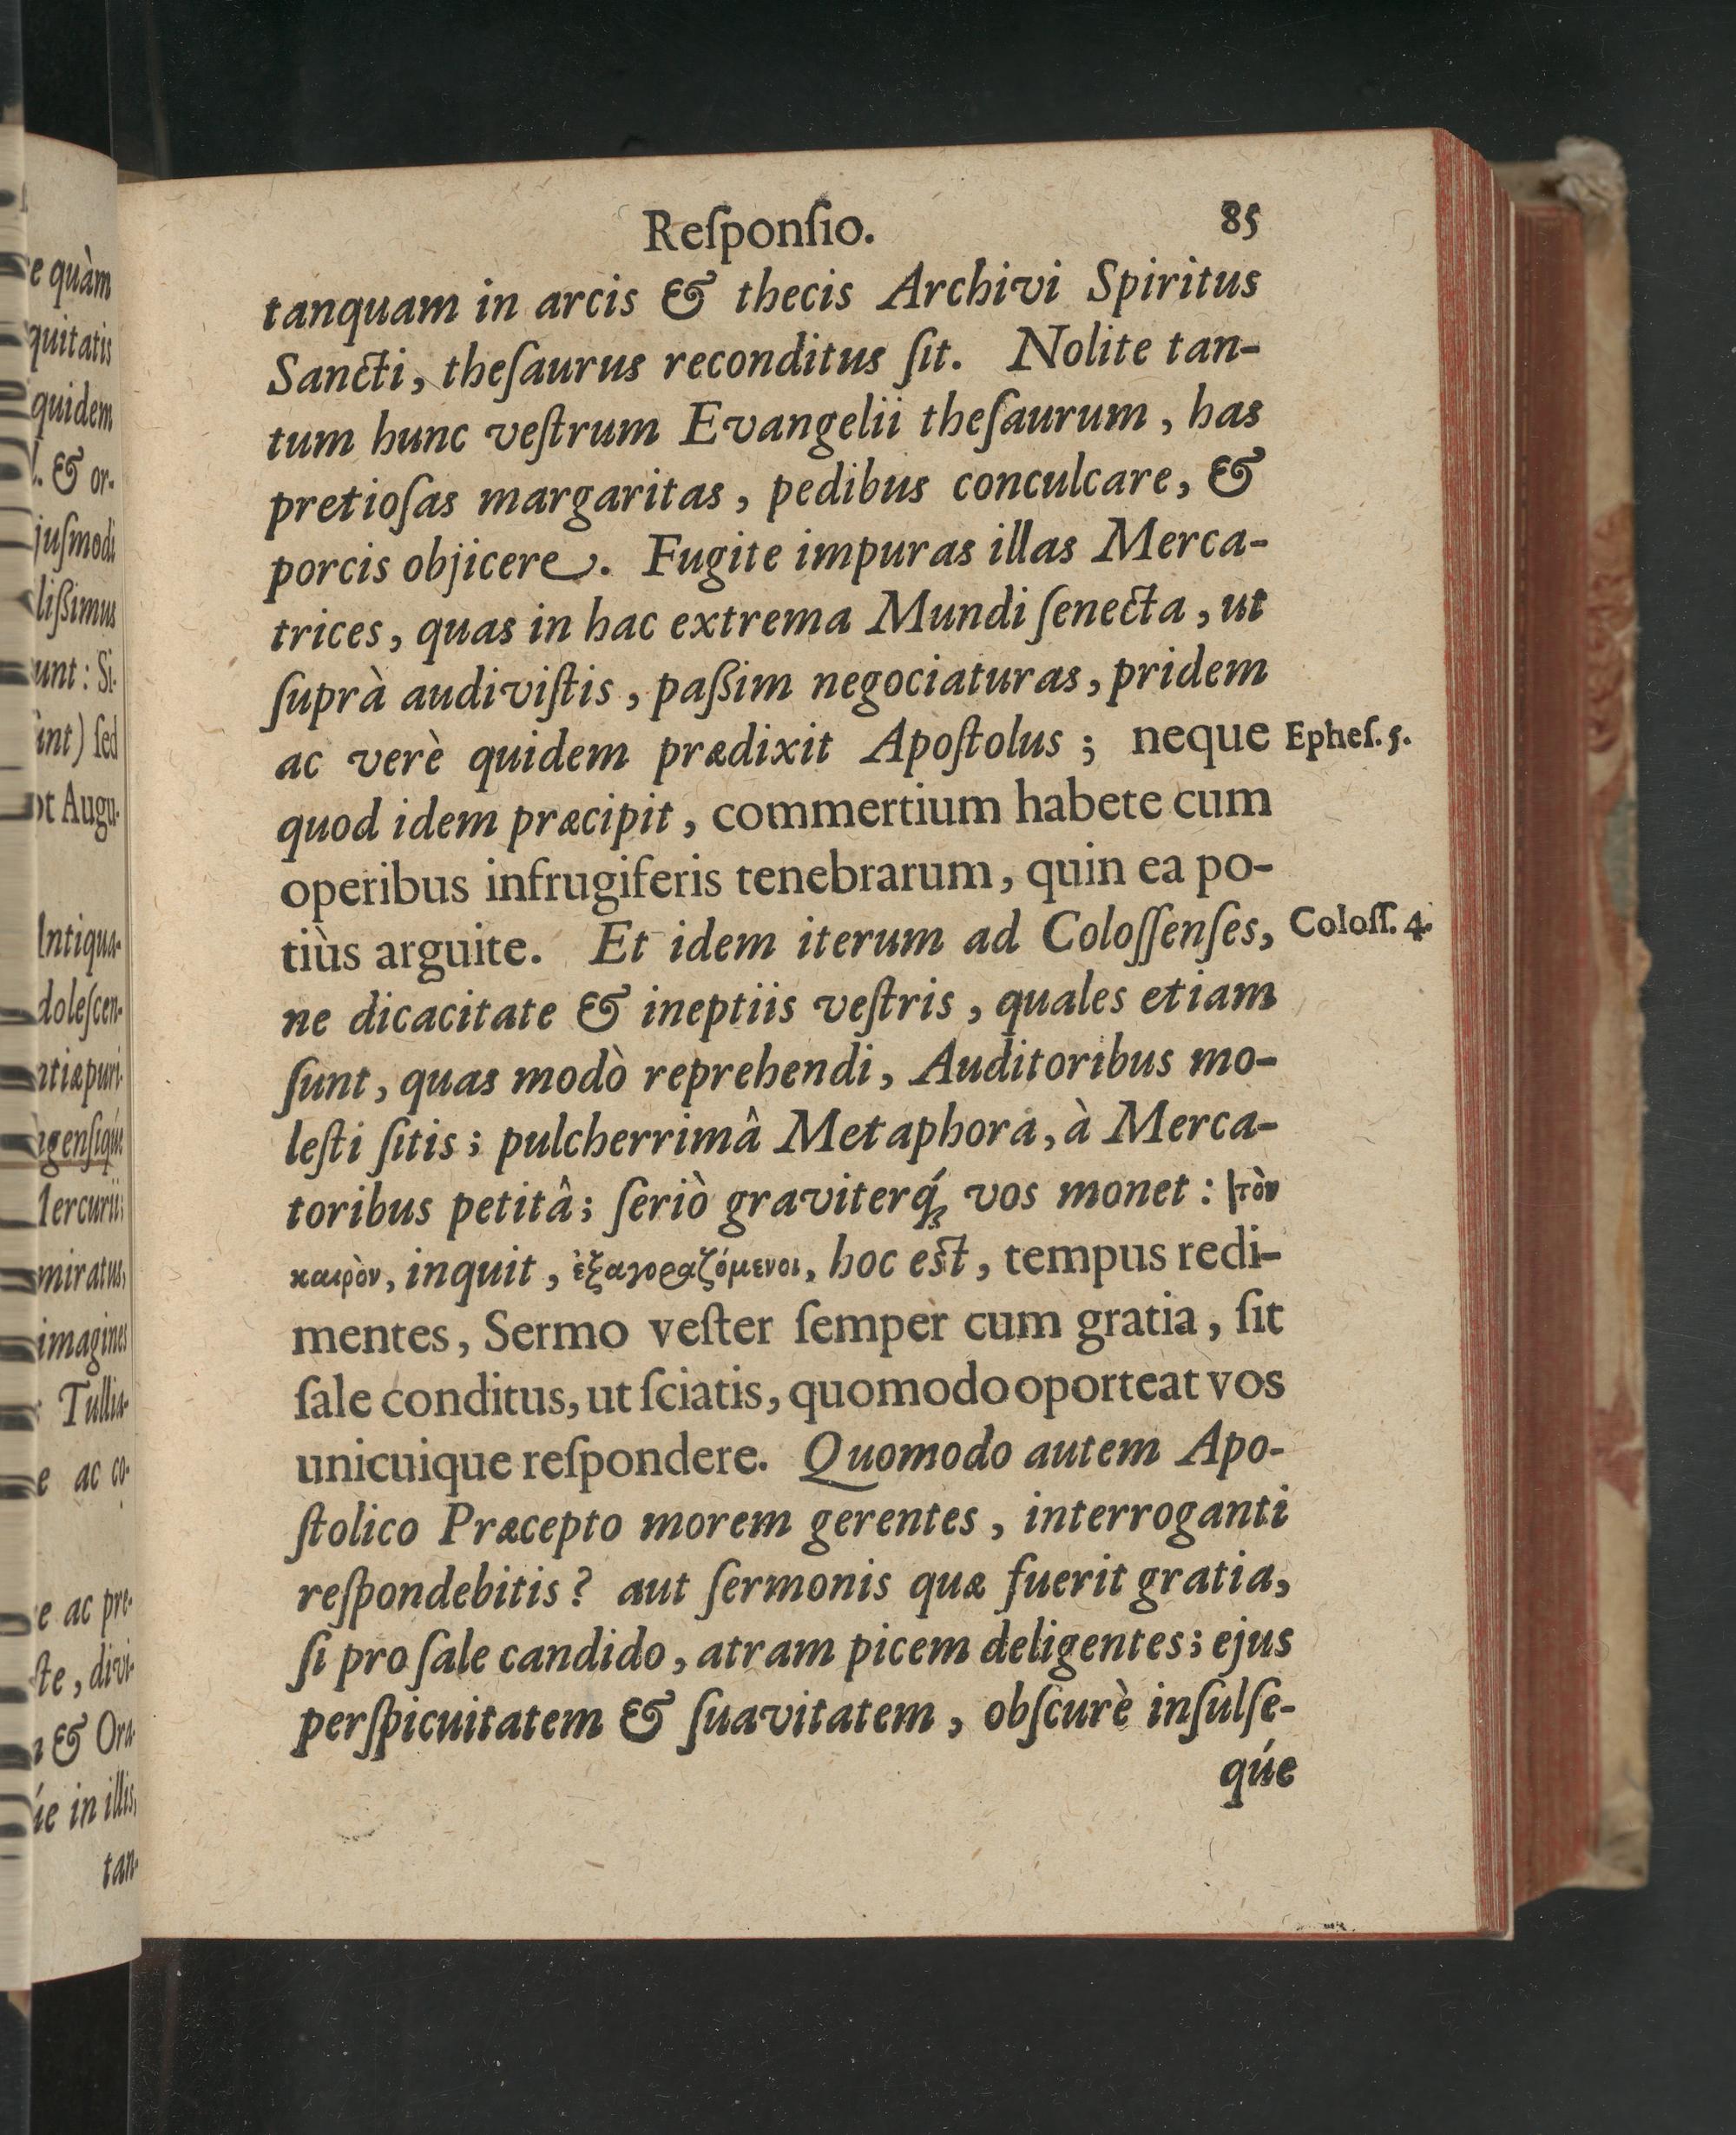 e quàm
quitatis
quidem
l. & or-
juſmodi
lißimus
unt: Si-
int) ſed
ot Augu-
Intiqua-
doleſcen-
ntiæ puri-
igenſiqúe
Mercurii;
miratus,
imagines
Tullia-
e ac co-
e ac pre-
ſte, divi-
& Ora-
úe in illis,
tan-
Reſponſio. 85
tanquam in arcis & thecis Archivi Spiritus
Sancti, theſaurus reconditus ſit. Nolite tan-
tum hunc veſtrum Evangelii theſaurum, has
pretioſas margaritas, pedibus conculcare, &
porcis objicere. Fugite impuras illas Merca-
trices, quas in hac extrema Mundi ſenecta, ut
ſuprà audiviſtis, paßim negociaturas, pridem
ac verè quidem prædixit Apoſtolus; neque Epheſ. 5.
quod idem præcipit, commertium habete cum
operibus infrugiferis tenebrarum, quin ea po-
tiùs arguite. Et idem iterum ad Coloſſenſes, Coloſſ. 4.
ne dicacitate & ineptiis veſtris, quales etiam
ſunt, quas modò reprehendi, Auditoribus mo-
leſti ſitis; pulcherrimâ Metaphora, à Merca-
toribus petitâ; ſeriò graviterq́ꝫ vos monet: τὸν
καιρὸν, inquit, ἐξαγοραζόμενοι, hoc eſt, tempus redi-
mentes, Sermo veſter ſemper cum gratia, ſit
ſale conditus, ut ſciatis, quomodo oporteat vos
unicuique reſpondere. Quomodo autem Apo-
ſtolico Præcepto morem gerentes, interroganti
reſpondebitis? aut ſermonis quæ fuerit gratia,
ſi pro ſale candido, atram picem deligentes; ejus
perſpicuitatem & ſuavitatem, obſcurè inſulſe-
qúe